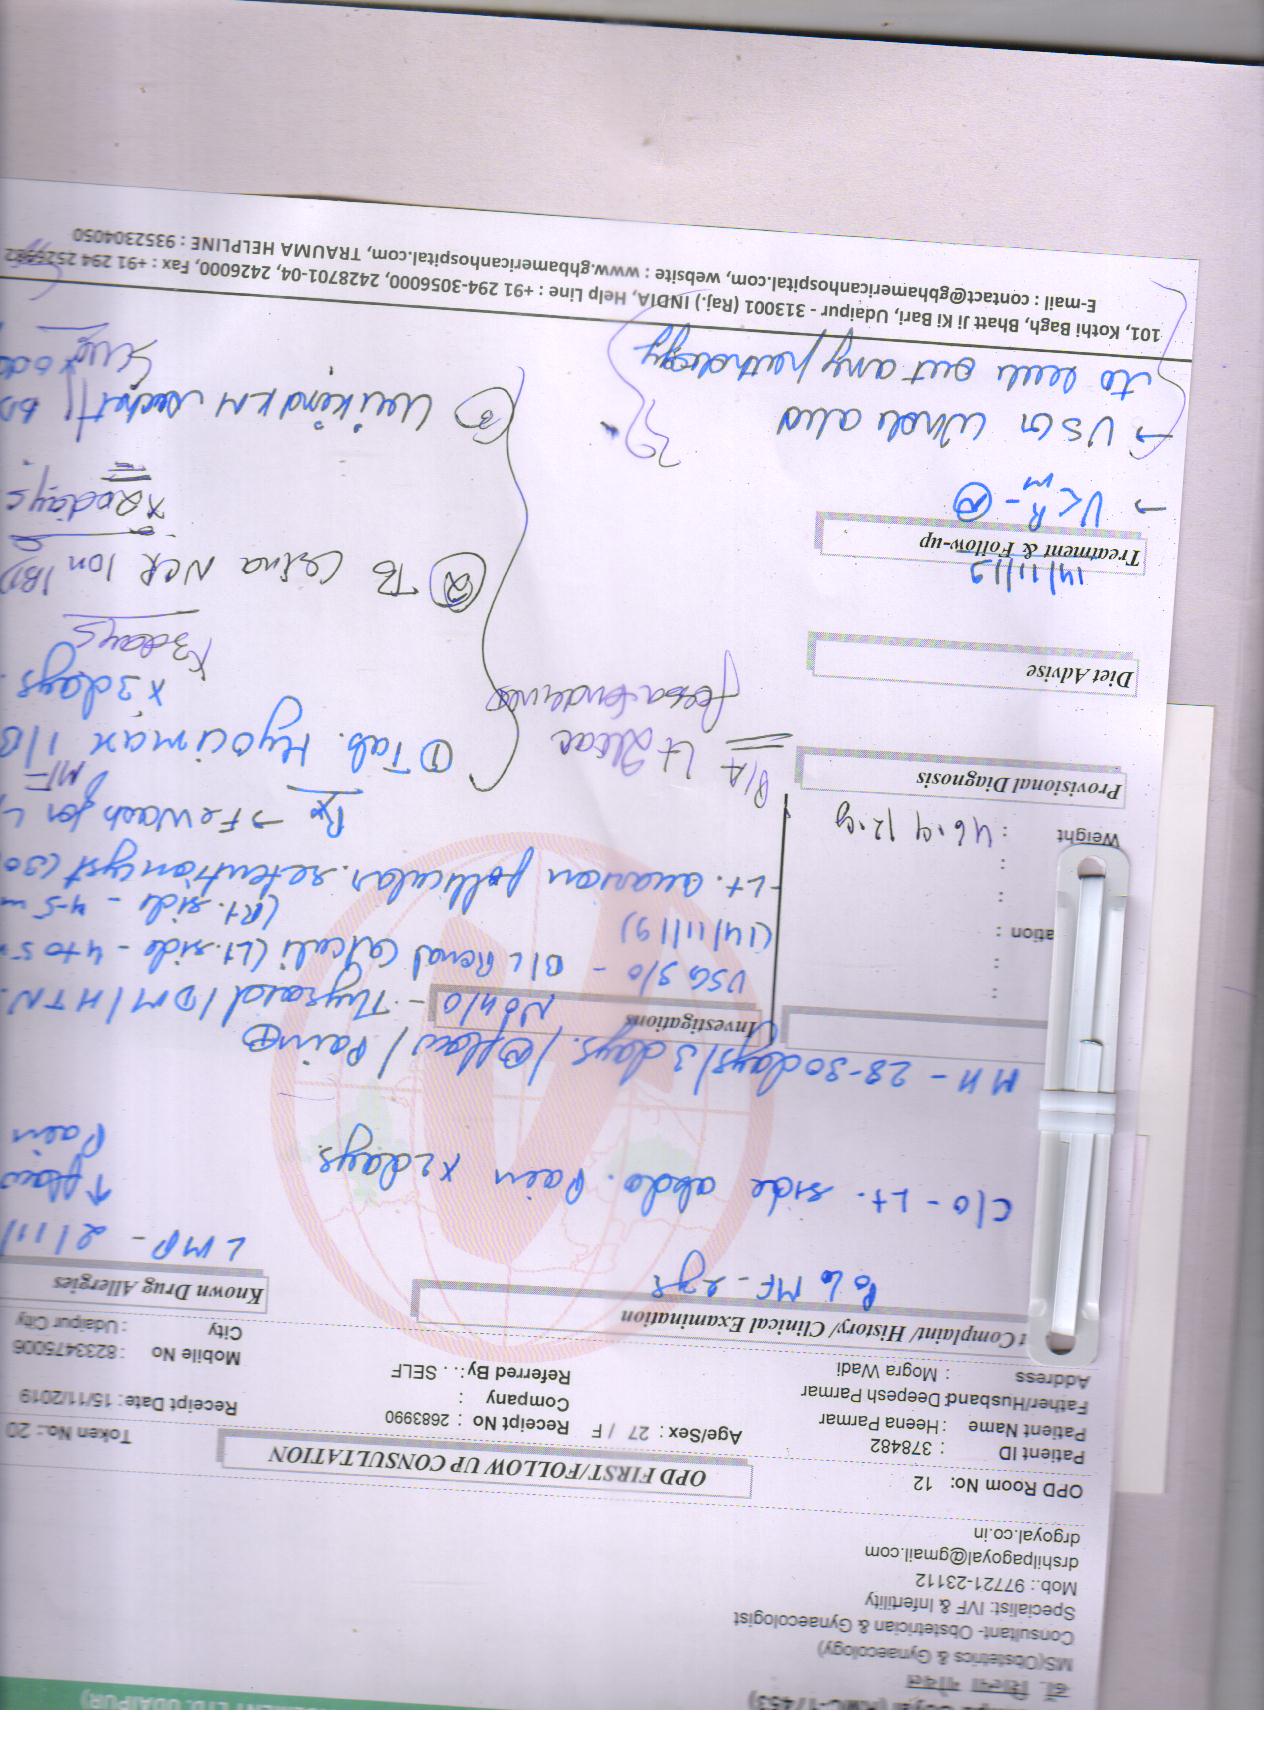 MENT LTD. UDAIPUR)
Goyal (RMC-17453)
डॉ. शिल्पा गोयल
MS(Obstetrics & Gynaecology)
Consultant- Obstetrician & Gynaecologist
Specialist: IVF & Infertility
Mob.: 97721-23112
drshilpagoyal@gmail.com
drgoyal.co.in
OPD Room No: 12
OPD FIRST/FOLLOW UP CONSULTATION
Token No.: 20
Patient ID : 378482
Patient Name : Heena Parmar
Father/Husband: Deepesh Parmar
Address : Mogra Wadi
Age/Sex : 27 / F
Receipt No : 2683990
Company :
Referred By: . . SELF
Receipt Date: 15/11/2019
Mobile No : 8233475006
City : Udaipur City
t Complaint/ History/ Clinical Examination
Known Drug Allergies
MF - 2yrs
LMP - 2/11/
C/O - Lt. side abdo. Pain x 2days.
↑ flow
Pain
MH - 28-30days/3days. / flow / Pain ⊕
Investigations
No h/o - Thyroid / DM / HTN.
USG S/O - B/L Renal calculi (Lt. side - 4 to 5
(14/11/19)
(Rt. side - 4-5 m
- Lt. ovarian follicular retention cyst (30
ation :
Weight : 46.4 kg
Rx → Fewash for
Provisional Diagnosis
① Tab. Hyocimax 1/B
x 3days.
x3days
P/A Lt
Diet Advise
② TB NCR 1on 1BD
days
14/11/19
Treatment & Follow-up
→ UC
→ USG whole abd
to rule out any pathology
③ KM sachet
101, Kothi Bagh, Bhatt Ji Ki Bari, Udaipur - 313001 (Raj.) INDIA, Help Line : +91 294-3056000, 2428701-04, 2426000, Fax : +91 294 2526982
E-mail : contact@gbhamericanhospital.com, website : www.gbhamericanhospital.com, TRAUMA HELPLINE : 9352304050